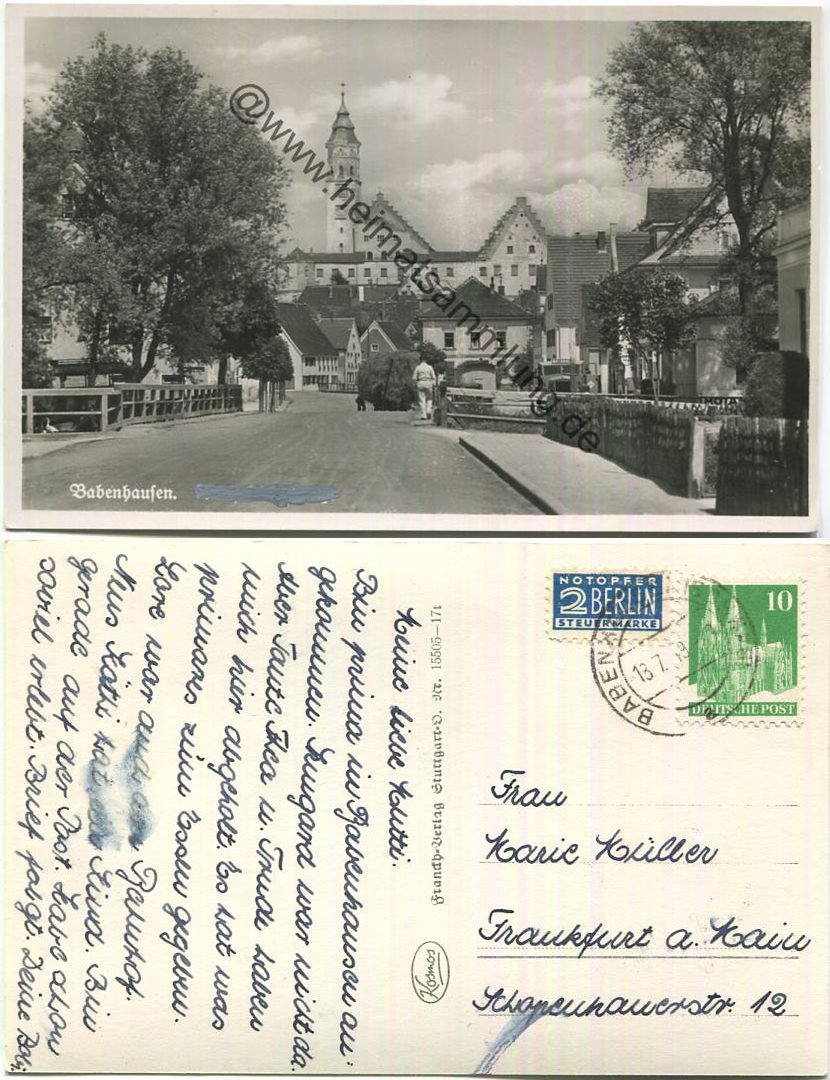 @www.heimatsammlung.de
MOTA
Babenhausen.
Meine liebe Mutti.
Bin prima in Babenhausen an-
gekommen. Irmgard war nicht da.
Aber Tante Thea u. Trude haben
mich hier abgeholt. Es hat was
primares zum Essen gegeben.
Lore war auch am Bahnhof.
Neus Käthi hat ein Kind. Bin
gerade auf der Post. Habe schon
soviel erlebt. Brief folgt. Deine
Franckh-Verlag Stuttgart-O. Nr. 15505—17t
Kosmos
NOTOPFER
2 BERLIN
STEUERMARKE
10
DEUTSCHE POST
BABENHAUSEN
13.7.
Frau
Marie Müller
Frankfurt a. Main
Schopenhauerstr. 12